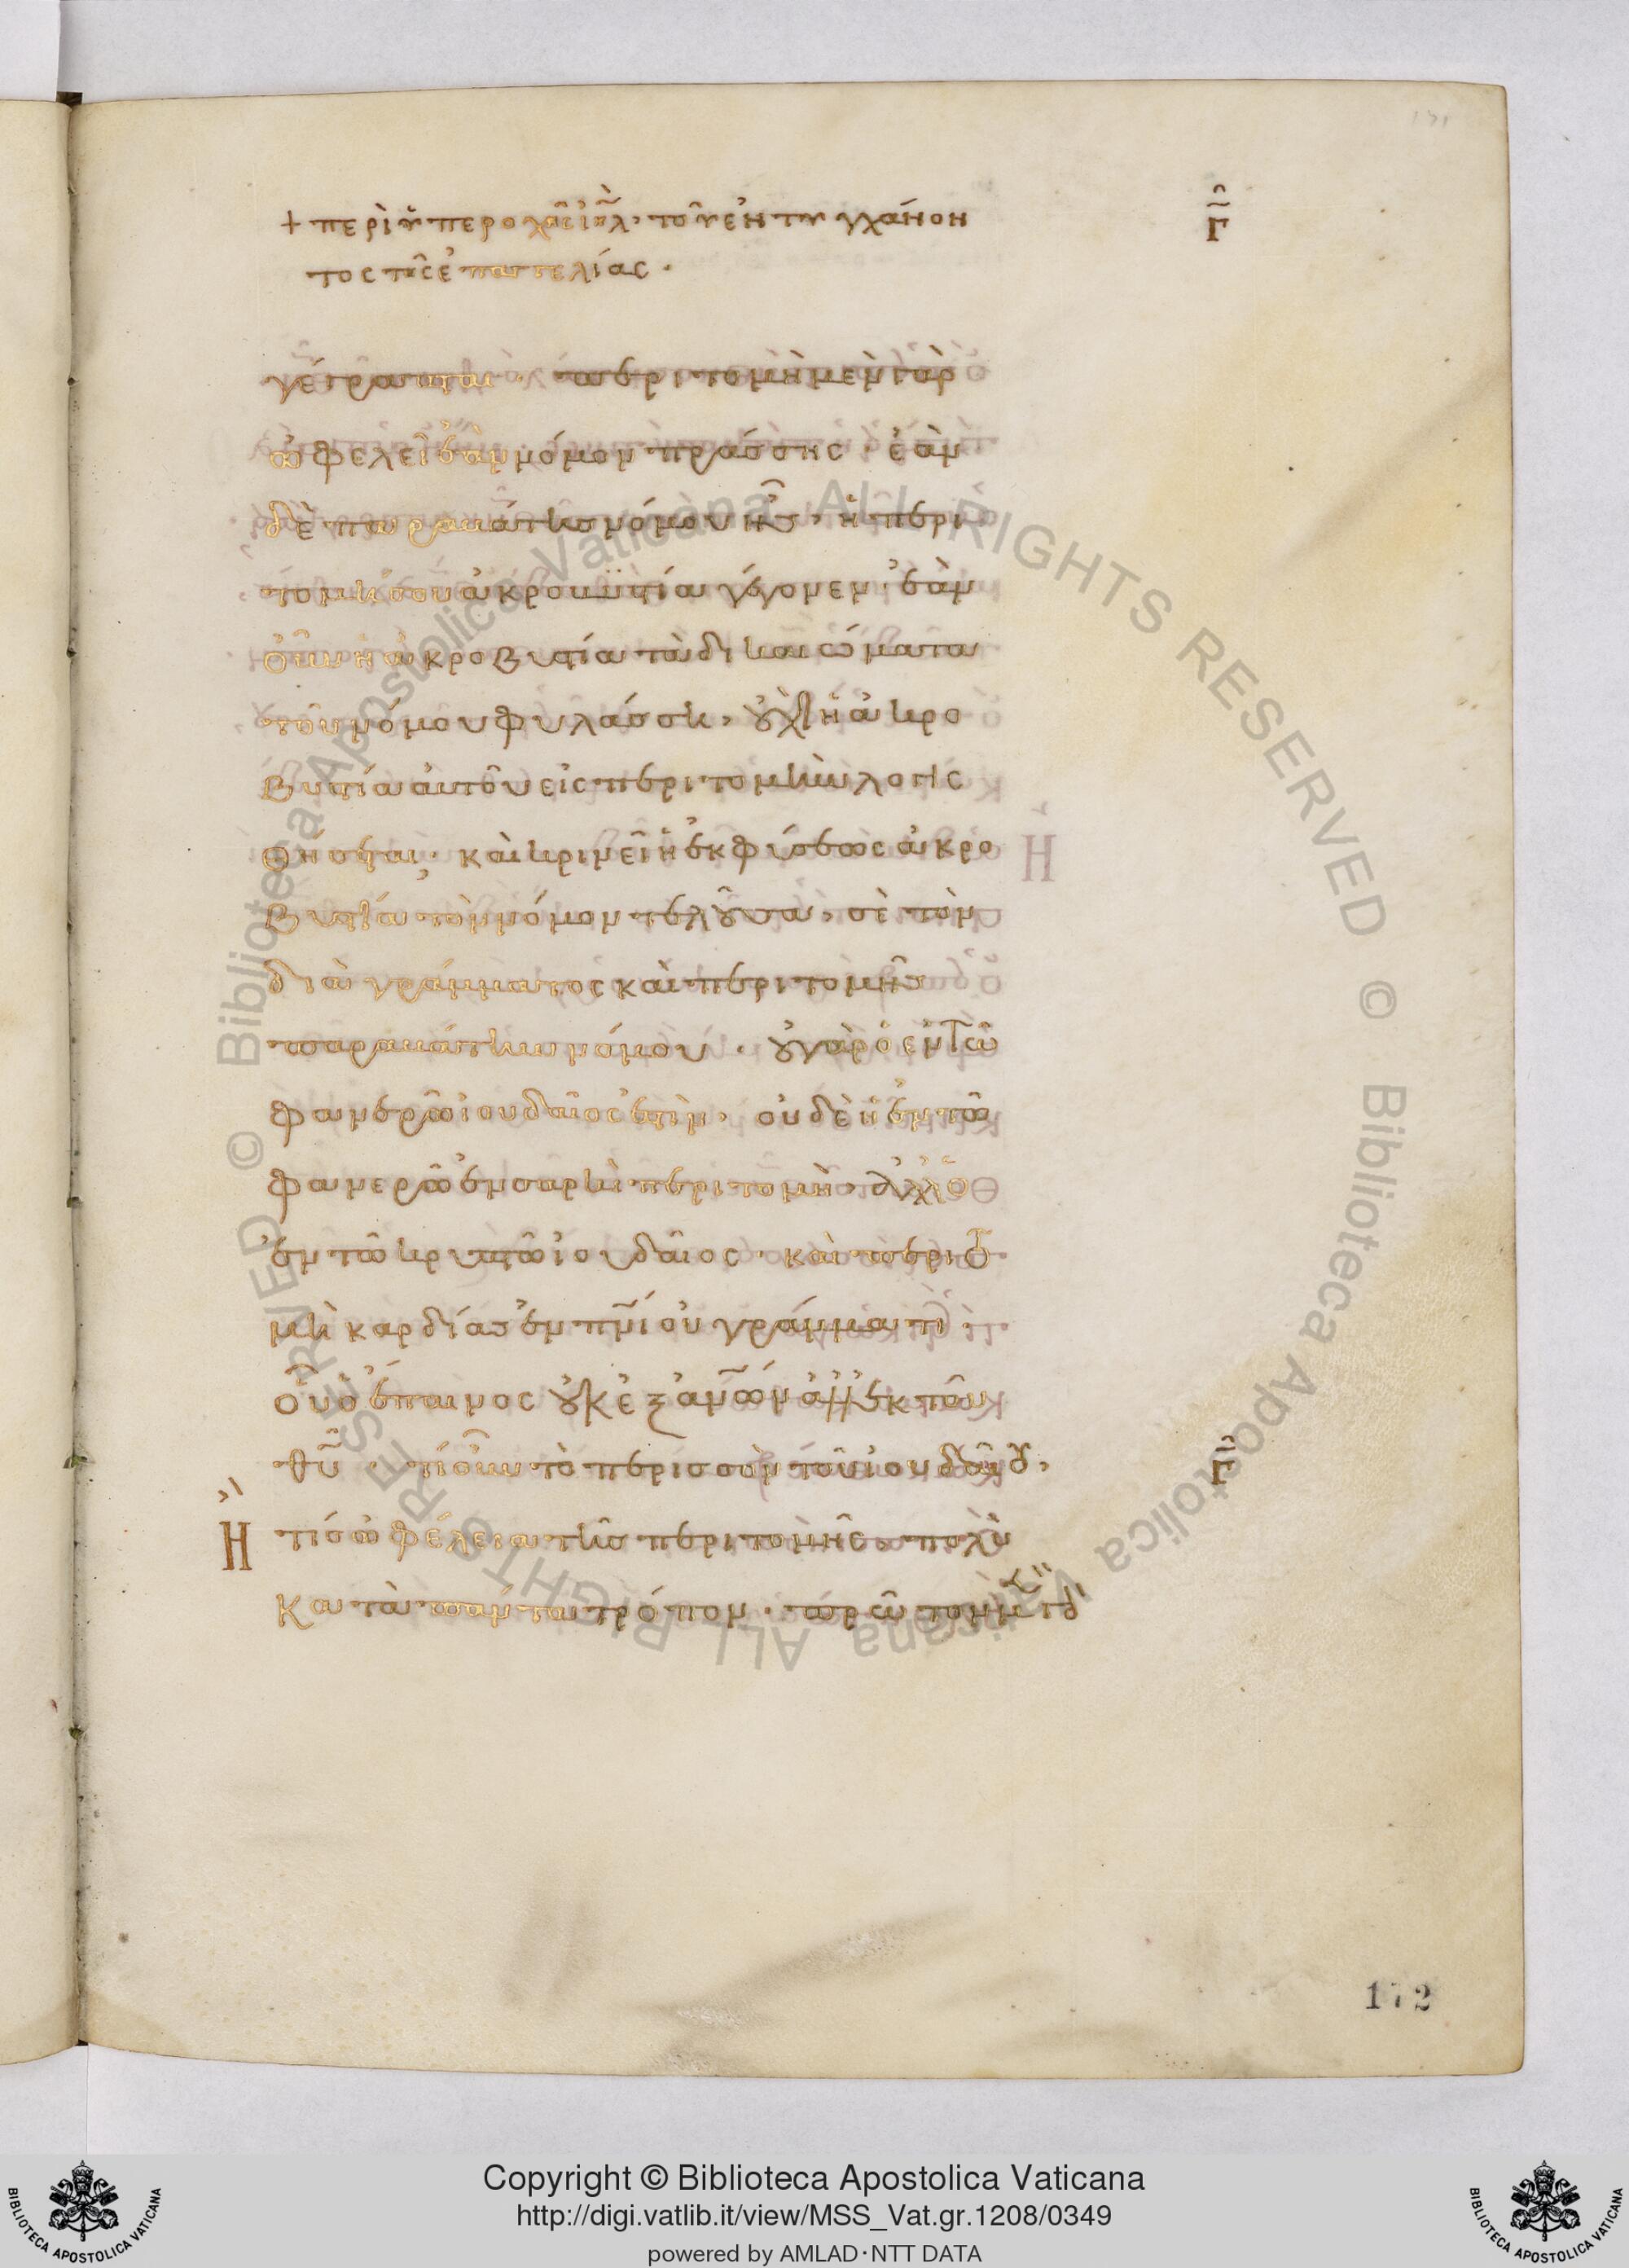 + περὶ ὑπεροχῆς ἰηλ· τοῦ ἐντυγχάνον
τος τῆς ἐπαγγελίας·
Γ
γέγραπται· περιτομὴ μὲν γὰρ
ὠφελεῖ ἐὰν νόμον πράσσης· ἐὰν
δὲ παραβάτης νόμου ῆς, ἡ περι
τομή σου ἀκροβυστία γέγονεν· ἐὰν
οὖν ἡ ἀκροβυστία τὰ δικαιώματα
τοῦ νόμου φυλάσση, οὐχὶ ἡ ἀκρο
βυστία αὐτοῦ εἰς περιτομὴν λογις
θήσεται; καὶ κρινεῖ ἡ ἐκ φύσεως ἀκρο
βυστία τὸν νόμον τελοῦσα, σὲ τὸν
διὰ γράμματος καὶ περιτομῆς
παραβάτην νόμου· οὐ γὰρ ὁ ἐν τῶ
φανερῶ ἰουδαῖος ἐστὶν, οὐδὲ ἡ ἐν τῶ
φανερῶ ἐν σαρκὶ περιτομὴ, ἀλλ' ὁ
ἐν τῶ κρυπτῶ ἰουδαῖος· καὶ περιτο
μὴ καρδίας ἐν πνι οὐ γράμματι·
οὗ ὁ ἔπαινος οὐκ ἐξ ανων ἀλλ' ἐκ τοῦ
θυ· τί οὖν τὸ περισσὸν τοῦ ἰουδαίου,
Γ
Η
τίς ὠφέλεια τῆς περιτομῆς, πολὺ
κατὰ πάντα τρόπον· πρῶτον μὲν
172
© Biblioteca Apostolica Vaticana ALL RIGHTS RESERVED © Biblioteca Apostolica Vaticana ALL RIGHTS RESERVED
Copyright © Biblioteca Apostolica Vaticana
http://digi.vatlib.it/view/MSS_Vat.gr.1208/0349
powered by AMLAD·NTT DATA
BIBLIOTECA APOSTOLICA VATICANA
BIBLIOTECA APOSTOLICA VATICANA